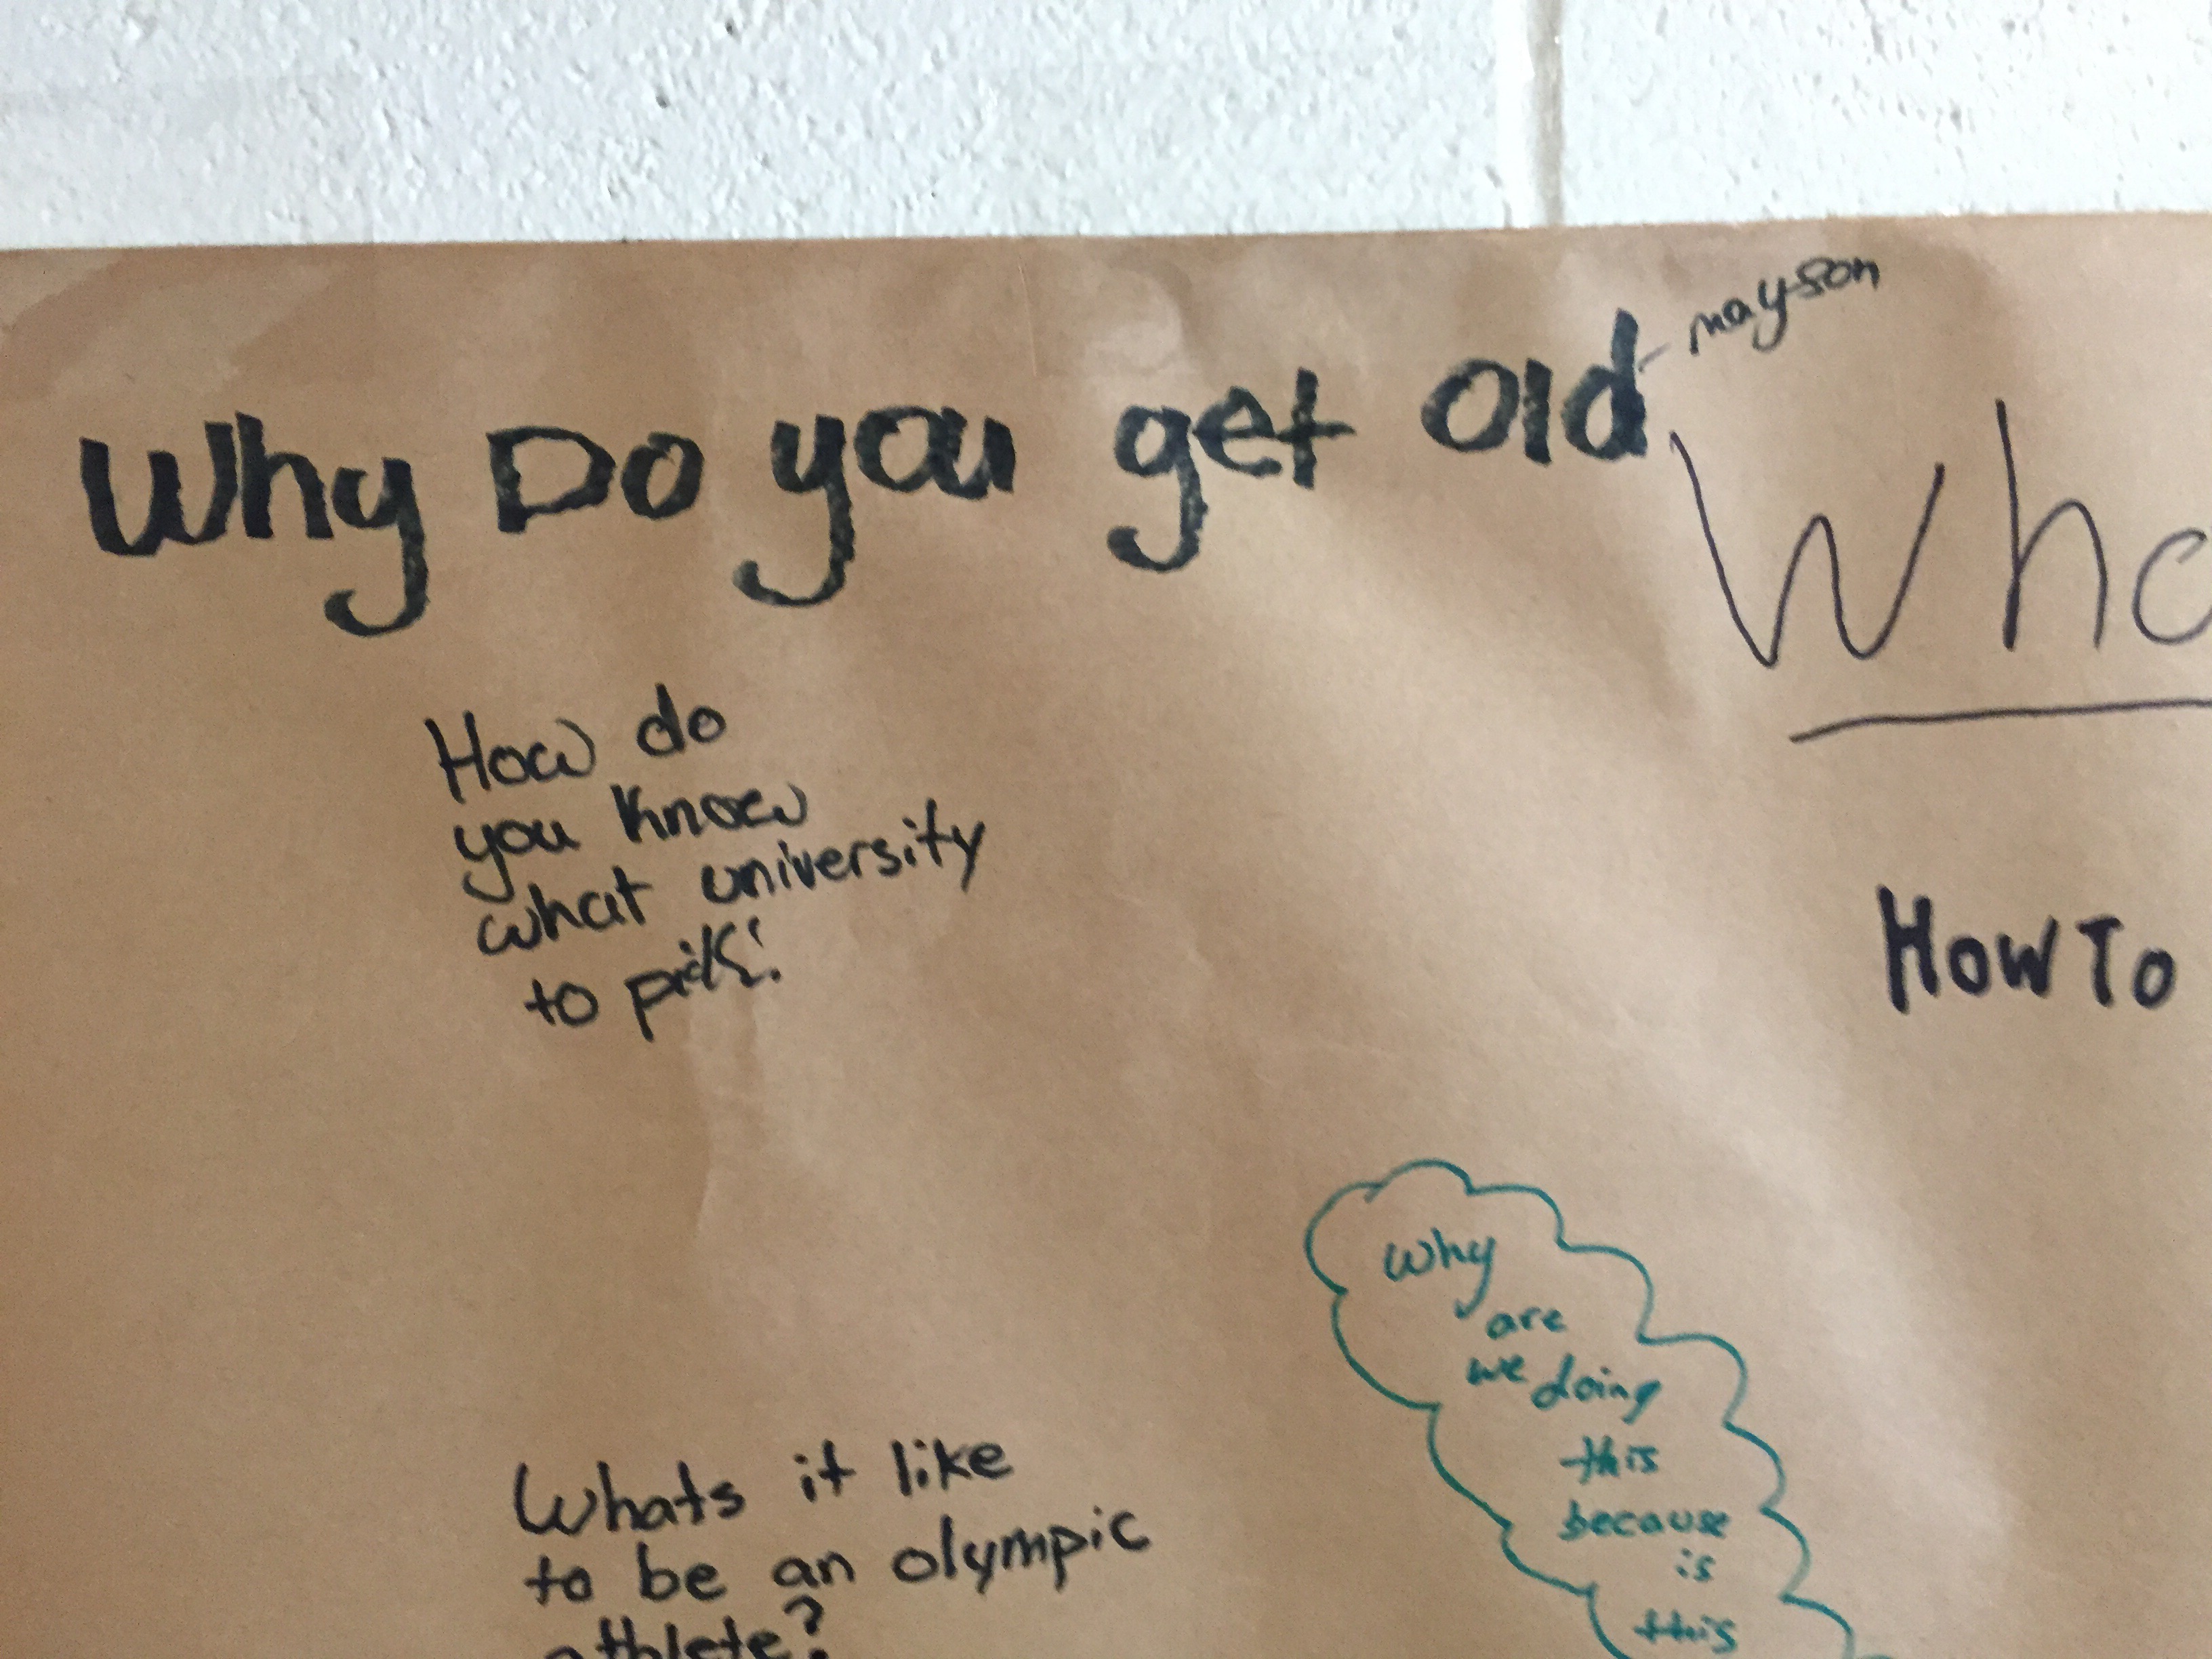 Why Do you get old - mayson
Who
How do
you know
what university
to pick?
How To
why
are
we doing
this
because
is
this
Whats it like
to be an olympic
athlete?